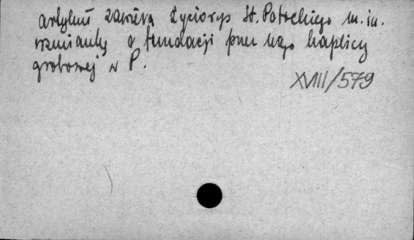 artykuł zawiera życiorys St. Potockiego m. in.
wzmianki o fundacji przez niego kaplicy
grobowej w P.
XVIII/579